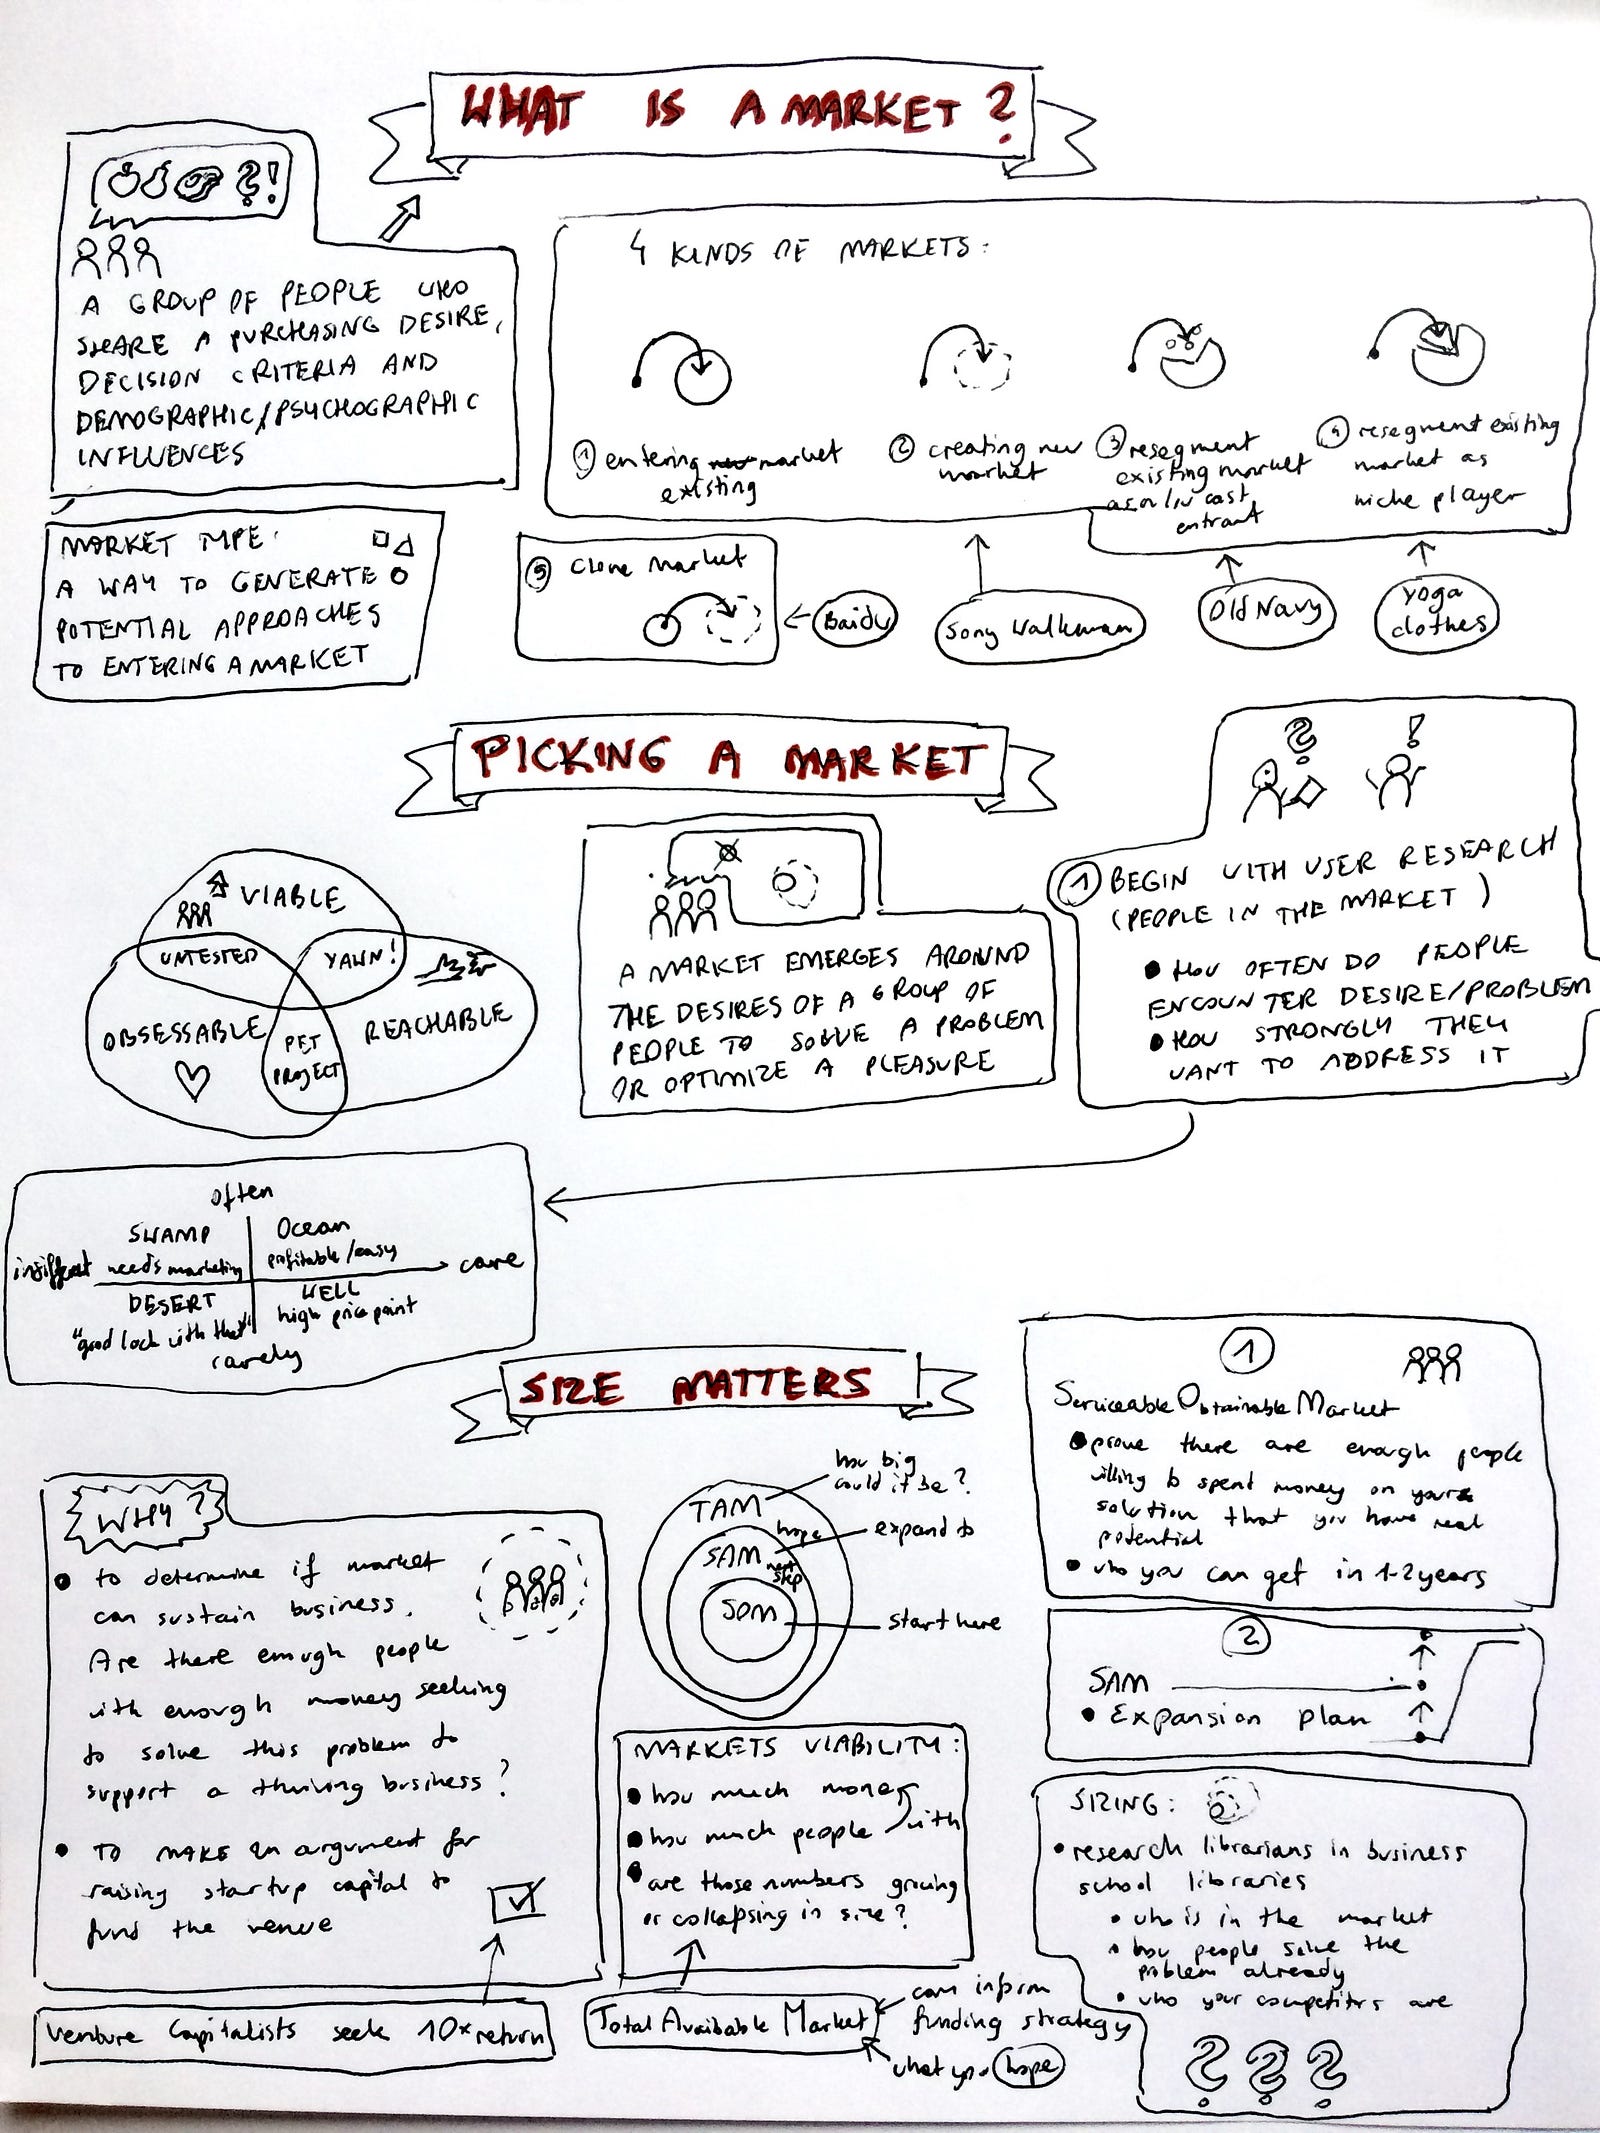 WHAT IS A MARKET?
?!
A GROUP OF PEOPLE WHO
SHARE A PURCHASING DESIRE,
DECISION CRITERIA AND
DEMOGRAPHIC/PSYCHOGRAPHIC
INFLUENCES
MARKET TYPE:
A WAY TO GENERATE
POTENTIAL APPROACHES
TO ENTERING A MARKET
4 KINDS OF MARKETS:
1 entering new market
existing
2 creating new
market
3 resegment
existing market
as a low cost
entrant
4 resegment existing
market as
niche player
5 Clone Market
Baidu
Sony Walkman
Old Navy
Yoga
clothes
PICKING A MARKET
VIABLE
UNTESTED
YAWN!
OBSESSABLE
PET
PROJECT
REACHABLE
A MARKET EMERGES AROUND
THE DESIRES OF A GROUP OF
PEOPLE TO SOLVE A PROBLEM
OR OPTIMIZE A PLEASURE
? !
1 BEGIN WITH USER RESEARCH
(PEOPLE IN THE MARKET)
• HOW OFTEN DO PEOPLE
ENCOUNTER DESIRE/PROBLEM
• HOW STRONGLY THEY
WANT TO ADDRESS IT
often
SWAMP
needs marketing
Ocean
profitable/easy
indifferent
care
DESERT
"good lock with that"
WELL
high price point
rarely
SIZE MATTERS
WHY?
• to determine if market
can sustain business.
Are there enough people
with enough money seeking
to solve this problem to
support a thriving business?
• TO MAKE an argument for
raising startup capital to
fund the venue
Venture Capitalists seek 10x return
TAM
how big
could it be?
hope
SAM
next
step
expand to
SOM
start here
MARKETS VIABILITY:
• how much money
• how much people
with
• are those numbers growing
or collapsing in size?
Total Available Market
can inform
funding strategy
what you hope
1
Serviceable Obtainable Market
• prove there are enough people
willing to spent money on your
solution that you have real
potential
• who you can get in 1-2 years
2
SAM
• Expansion plan
SIZING:
• research librarians in business
school libraries
• who is in the market
• how people solve the
problem already
• who your competitors are
? ? ?